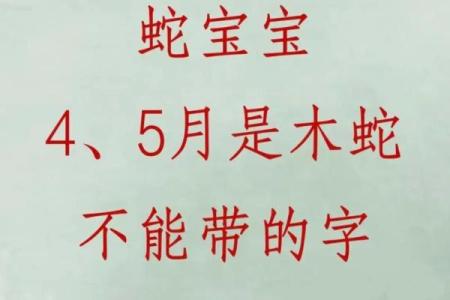 蛇宝宝
4、5月是木蛇
不能带的字